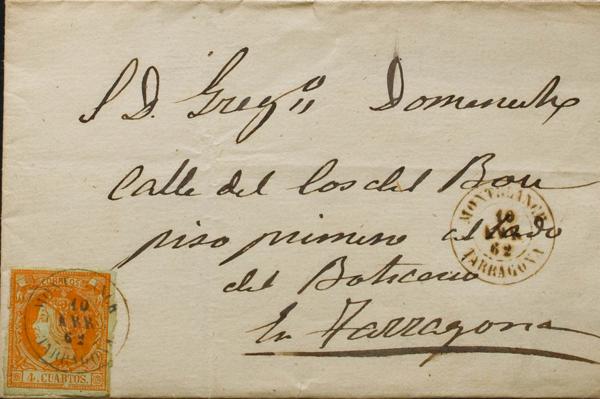 S D. Greg.º Domenech
Calle del Cos del Bou
piso primero al lado
del Boticario
En Tarragona
MONTBLANCH
10
ABR
62
TARRAGONA
CORREOS
10
ABR
62
TARRAGONA
4 CUARTOS.